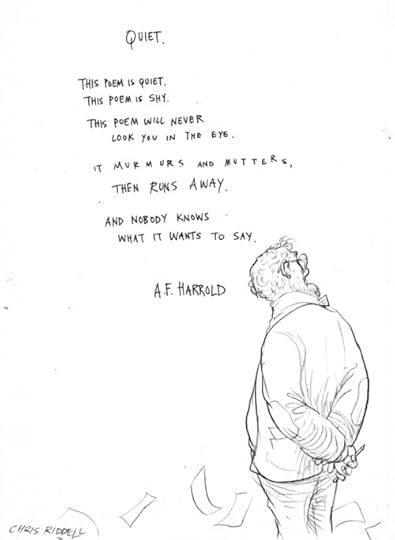 QUIET.
THIS POEM IS QUIET.
THIS POEM IS SHY.
THIS POEM WILL NEVER
LOOK YOU IN THE EYE.
IT MURMURS AND MUTTERS,
THEN RUNS AWAY.
AND NOBODY KNOWS
WHAT IT WANTS TO SAY.
A.F. HARROLD
CHRIS RIDDELL